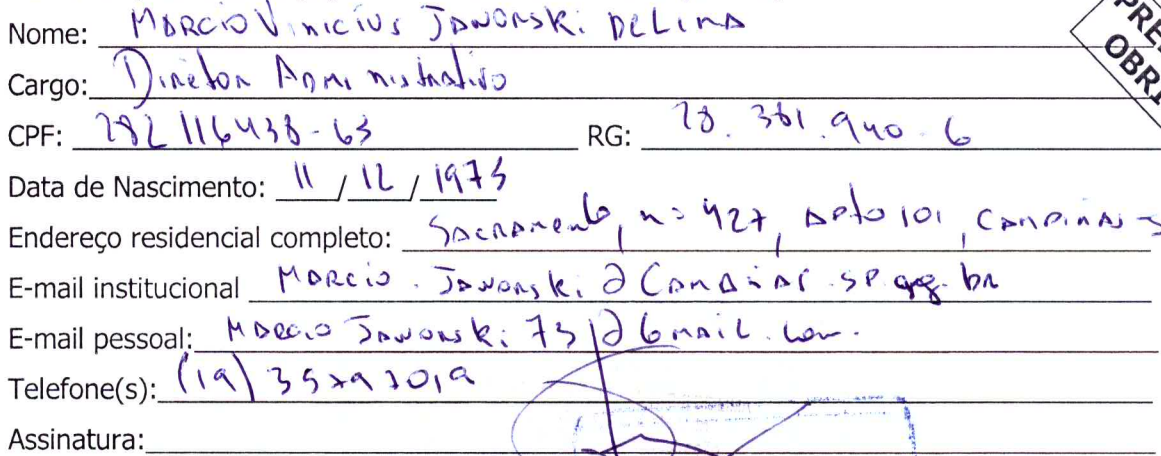 PRE
OBRI
Nome: Marcio Vinicius Jaworski de Lima
Cargo: Diretor Administrativo
CPF: 282 116438-63 RG: 28.381.940-6
Data de Nascimento: 11 / 12 / 1973
Endereço residencial completo: Sacramento, n: 427, Apto 101, Campinas - S
E-mail institucional Marcio.Jaworski@Campinas.sp.gov.br
E-mail pessoal: Marcio Jaworski 73 @ Gmail.com.
Telefone(s): (19)
Assinatura: